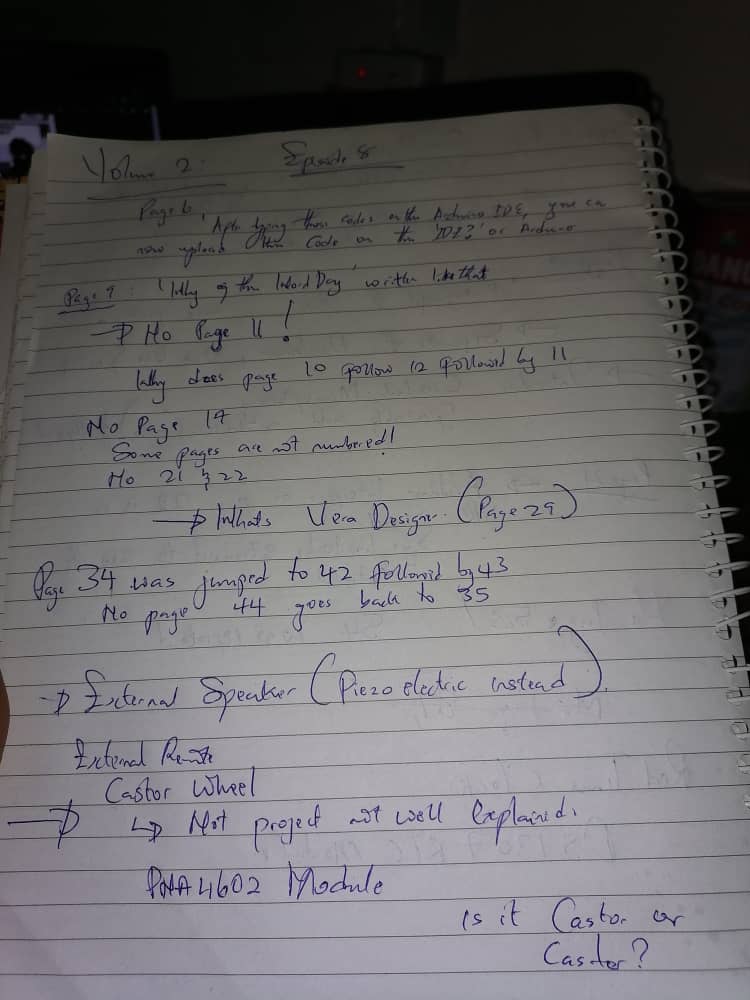 Volume 2: Episode 8
Page 6, After typing these codes on the Arduino IDE, you can
now upload the Code on the '2023' or Arduino
Page 9: 'Why of the Word Day' written like that
→ No Page 11!
Why does page 10 follow 12 followed by 11
No Page 17
Some pages are not numbered!
No 21 & 22
→ Whats Vera Designer. (Page 29)
Page 34 was jumped to 42 followed by 43
No page 44 goes back to 35
→ External Speaker (Piezo electric instead).
External Remote
Castor Wheel
→ ↳ Not project not well explained.
PNA4602 Module
Is it Castor or
Caster?